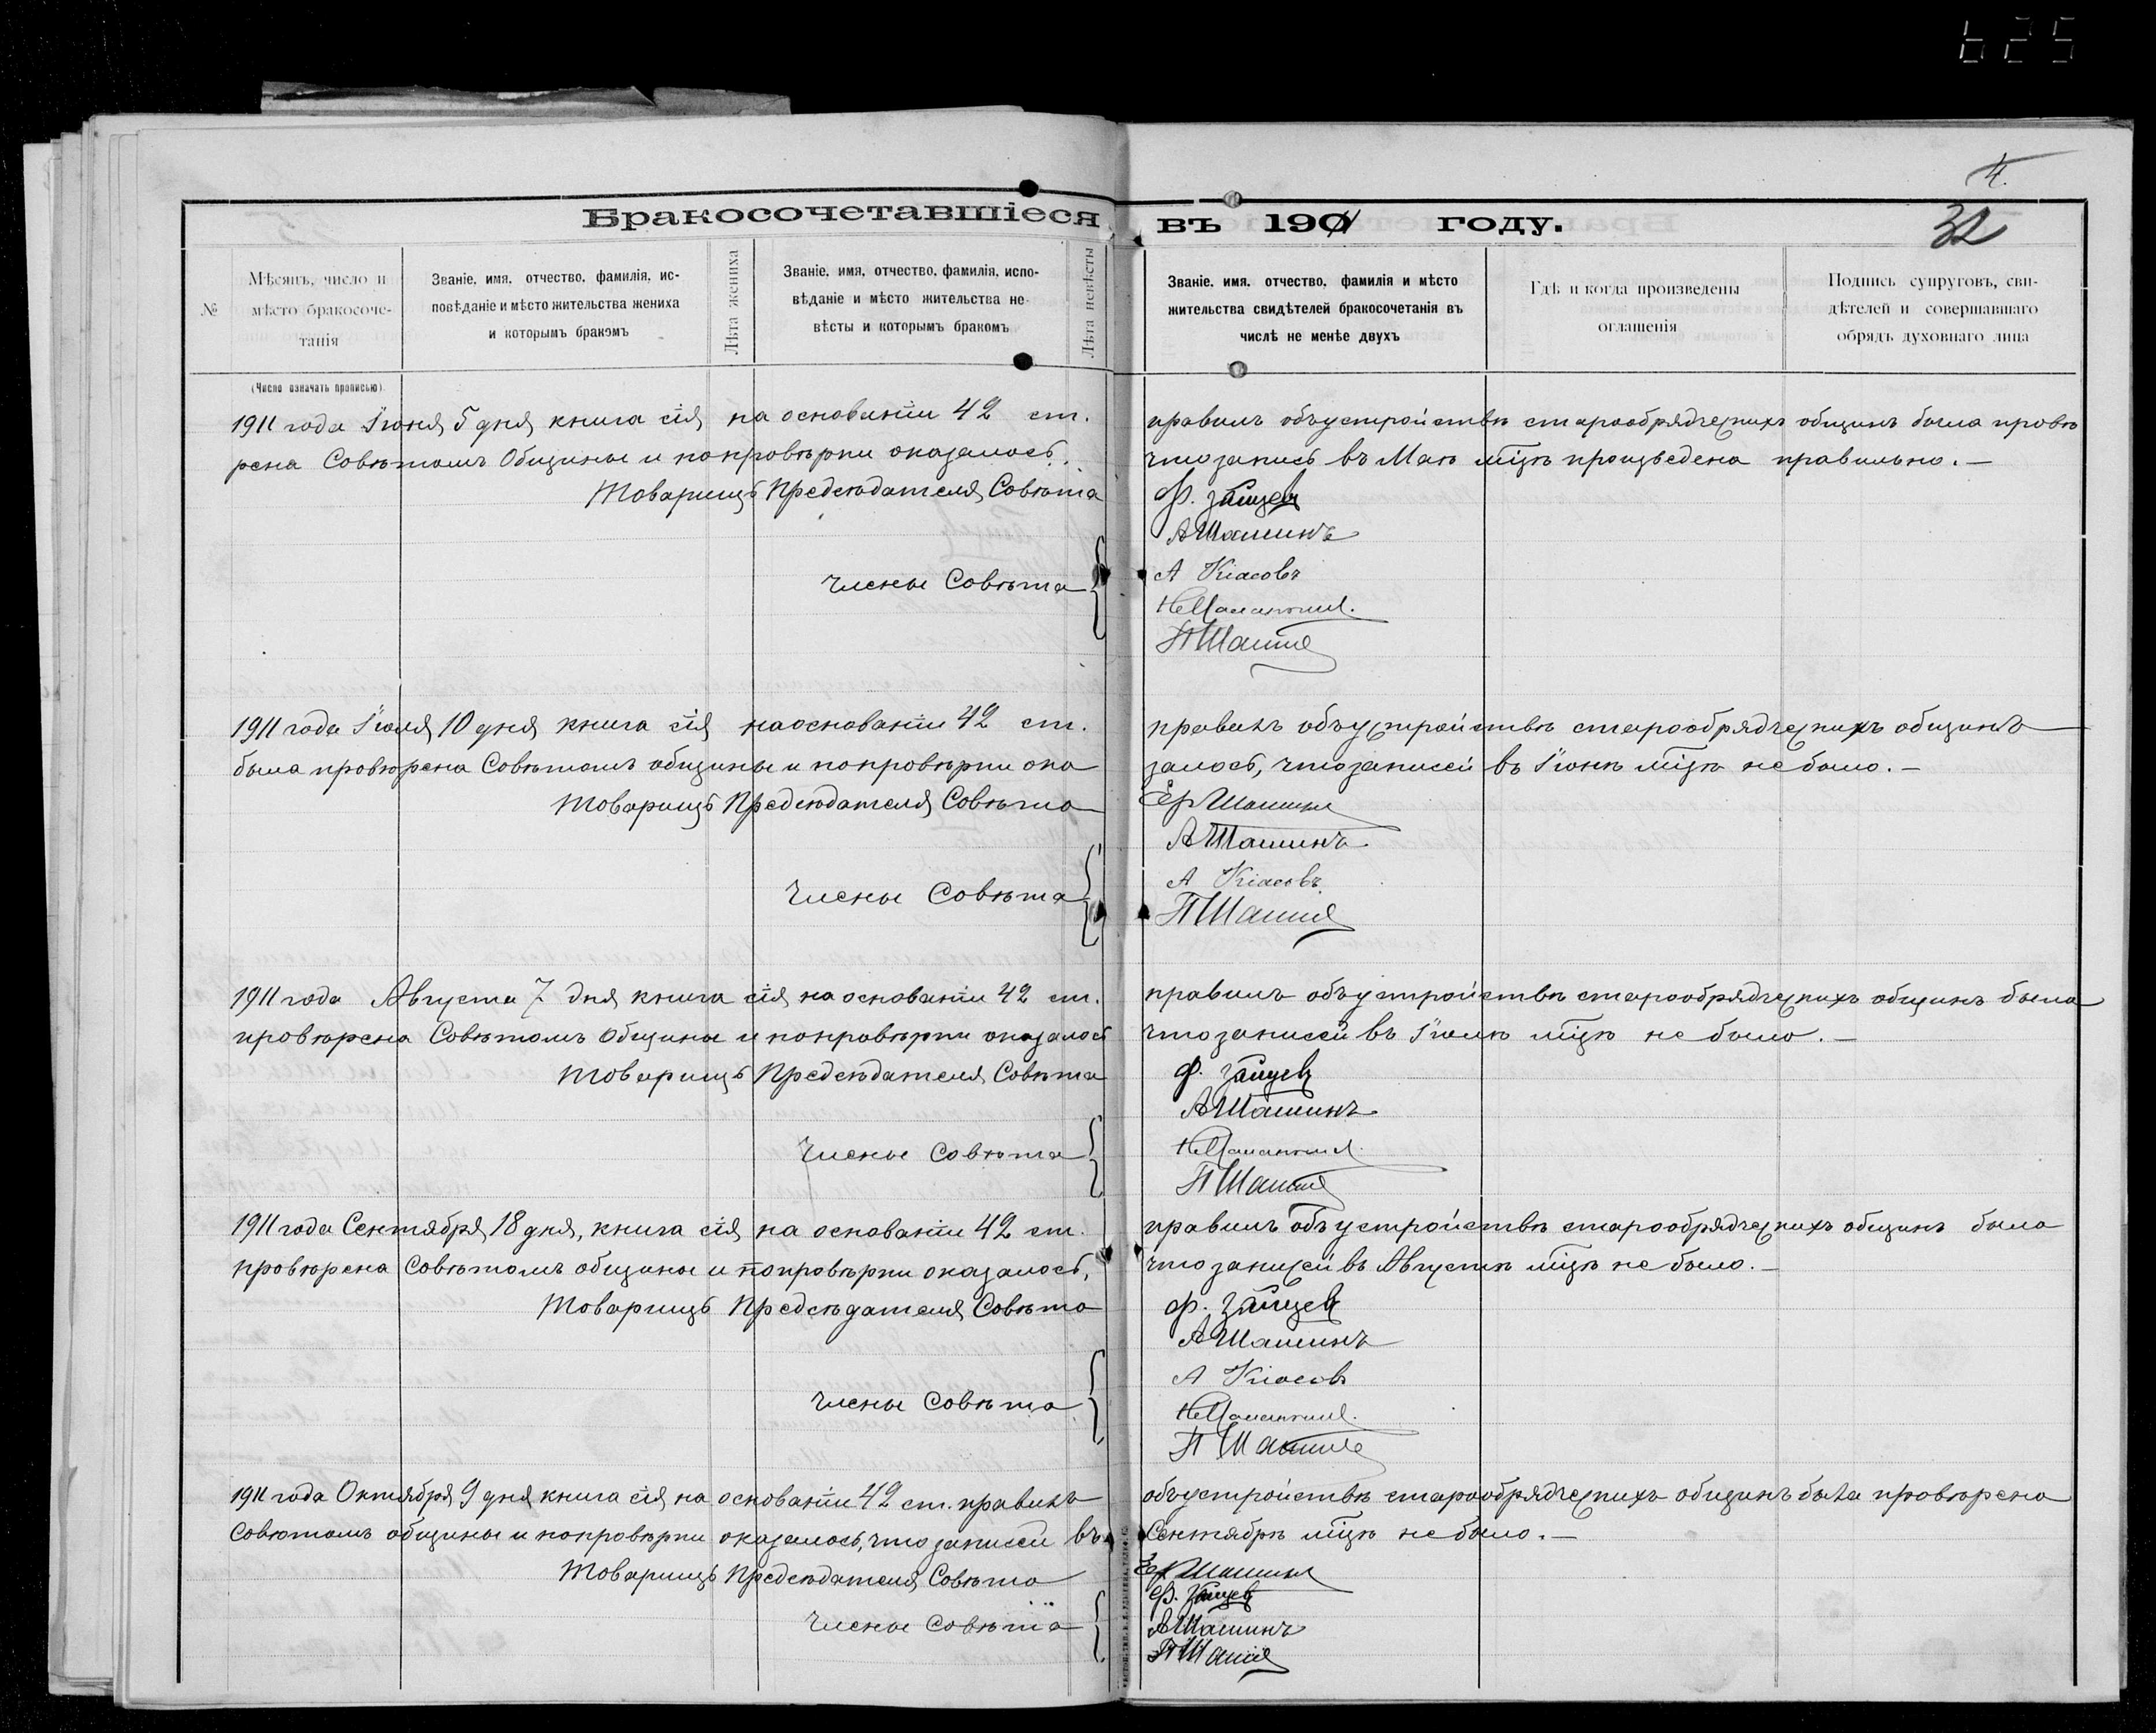 625
4.
32
Бракосочетавшіеся въ 1901 году.
№
Мѣсяцъ, число и мѣсто бракосочетанія
Званіе, имя, отчество, фамилія, исповѣданіе и мѣсто жительства жениха и которымъ бракомъ
Лѣта жениха
Званіе, имя, отчество, фамилія, исповѣданіе и мѣсто жительства невѣсты и которымъ бракомъ
Лѣта невѣсты
Званіе, имя, отчество, фамилія и мѣсто жительства свидѣтелей бракосочетанія въ числѣ не менѣе двухъ
Гдѣ и когда произведены оглашенія
Подпись супруговъ, свидѣтелей и совершавшаго обрядъ духовнаго лица
(Число означать прописью).
1911 года Іюня 5 дня книга сія на основаніи 42 ст. правилъ объ устройствѣ старообрядческихъ общинъ была провѣ
рена Совѣтомъ Общины и по провѣрки оказалось, что запись въ Маѣ мцѣ произведена правильно. —
Товарищъ Предсѣдателя Совѣта Ф. Зайцев
А Шашинъ
Члены Совѣта А Кіасовъ
П Шашин
1911 года Іюля 10 дня книга сія на основаніи 42 ст. правилъ объ устройствѣ старообрядческихъ общинъ
была провѣрена Совѣтомъ общины и по провѣрки ока залось, что записей въ Іюнѣ мцѣ не было. —
Товарищъ Предсѣдателя Совѣта Ер Шашин
А Шашинъ
Члены Совѣта А Кіасовъ
П Шашин
1911 года Августа 7 дня книга сія на основаніи 42 ст. правилъ объ устройствѣ старообрядческихъ общинъ была
провѣрена Совѣтомъ Общины и по провѣрки оказалось что записей въ Іюлѣ мцѣ не было. —
Товарищъ Предсѣдателя Совѣта Ф. Зайцев
А Шашинъ
Члены Совѣта
П Шашин
1911 года Сентября 18 дня, книга сія на основаніи 42 ст. правилъ объ устройствѣ старообрядческихъ общинъ была
провѣрена Совѣтомъ общины и по провѣрки оказалось, что записей въ Августѣ мцѣ не было. —
Товарищъ Предсѣдателя Совѣта Ф. Зайцев
А Шашинъ
А Кіасовъ
Члены Совѣта
П Шашин
1911 года Октября 9 дня книга сія на основаніи 42 ст. правилъ объ устройствѣ старообрядческихъ общинъ была провѣрена
Совѣтомъ общины и по провѣрки оказалось, что записей въ Сентябрѣ мцѣ не было. —
Товарищъ Предсѣдателя Совѣта Ер Шашин
Ф. Зайцев
Члены Совѣта А Шашинъ
П Шашин